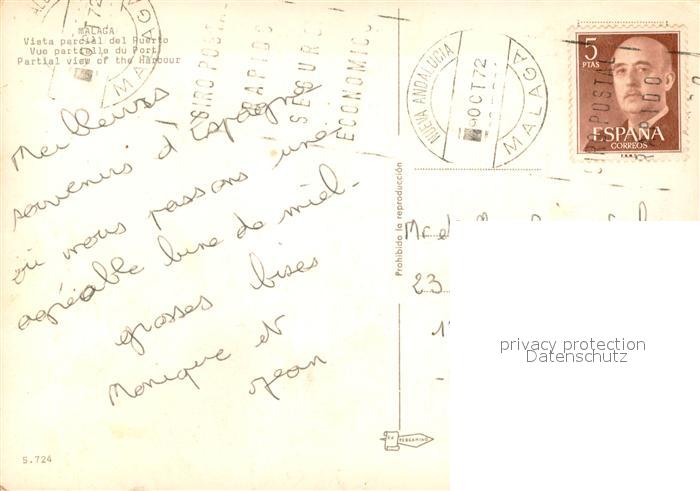 MALAGA
Vista parcial del Puerto
Vue partielle du Port
Partial view of the Harbour
72
MALAGA
GIRO POSTAL
RAPIDO
SEGURO
ECONOMICO
NUEVA ANDALUCIA
OCT 72
MALAGA
5
PTAS
ESPAÑA
CORREOS
GIRO POSTAL
RAPIDO
Meilleurs
souvenirs d'Espagne
où nous passons une
agréable lune de miel.
grosses bises
Monique et
Jean
Prohibida la reproducción
23
privacy protection
Datenschutz
ED. PERGAMINO
S.724